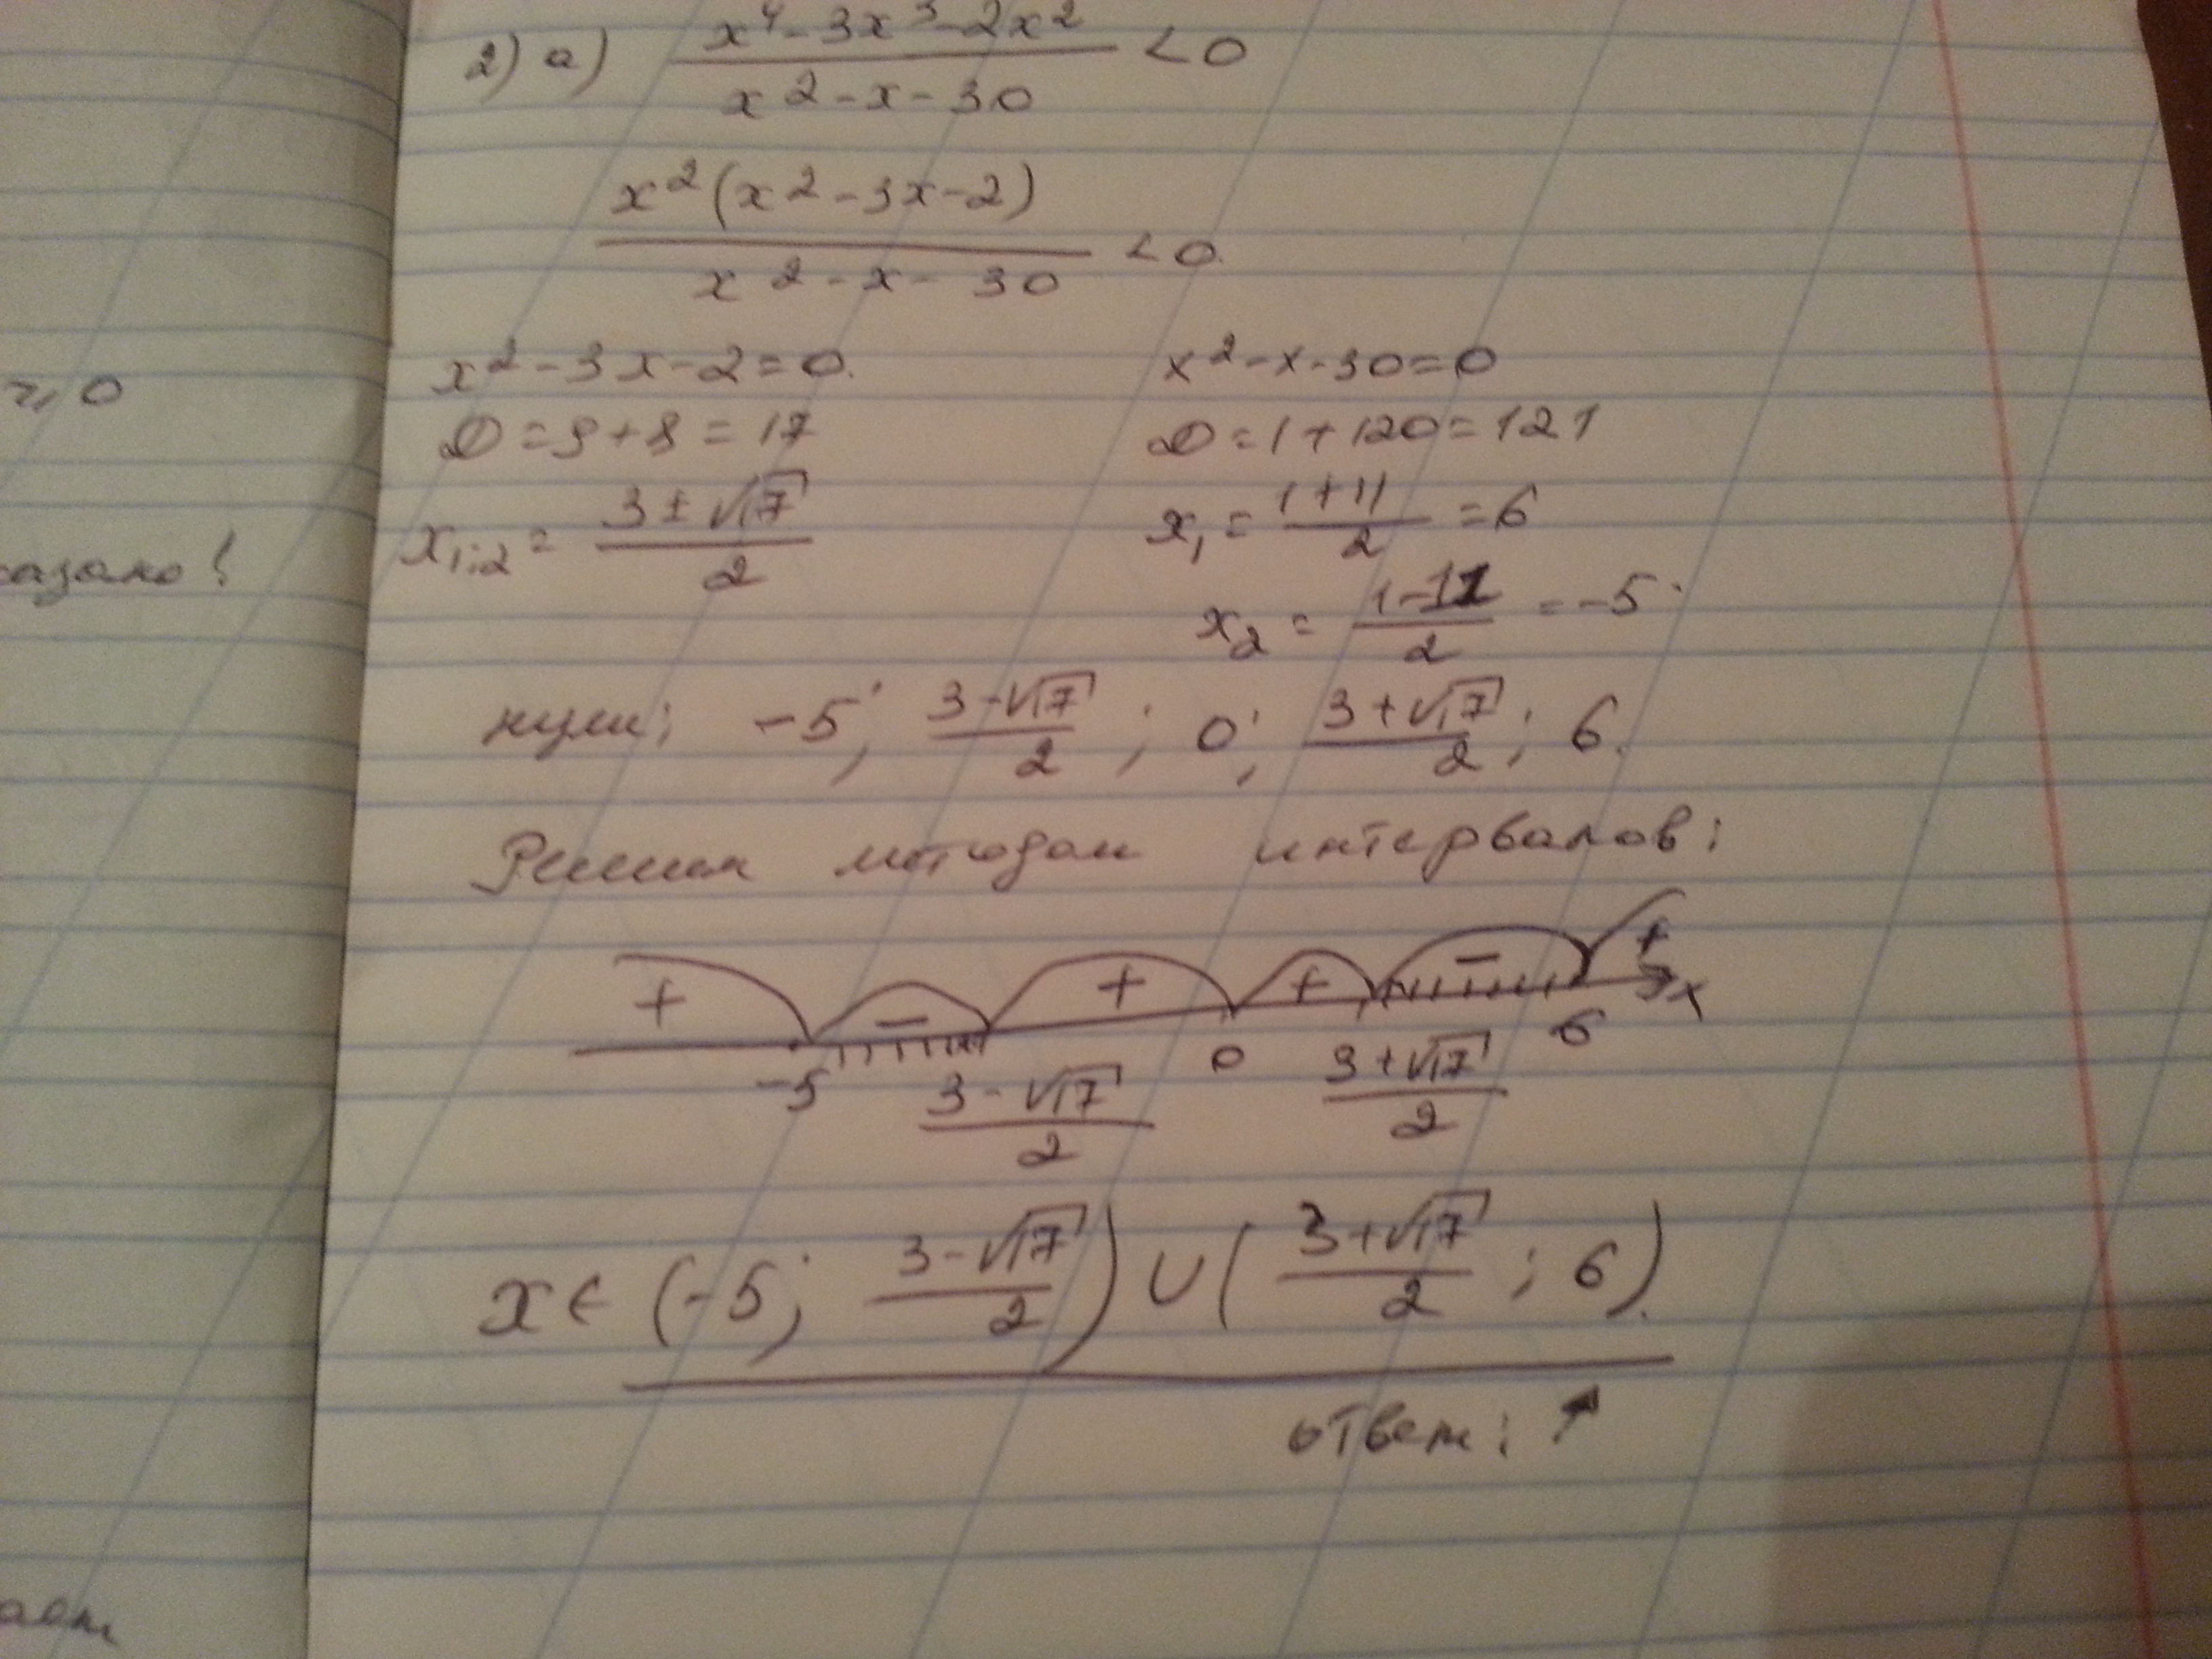 2) а) (x⁴-3x³-2x²)/(x²-x-30) <0
x²(x²-3x-2)/(x²-x-30) <0.
⩾ 0
x²-3x-2=0. x²-x-30=0
D=9+8=17 D=1+120=121
x₁;₂= (3±√17)/2 x₁ = (1+11)/2 =6
x₂ = (1-11)/2 =-5
нули: -5; (3-√17)/2 ; 0; (3+√17)/2; 6.
Решим методом интервалов:
+ - + + - +
-5 (3-√17)/2 0 (3+√17)/2 6 x
x∈ (-5; (3-√17)/2) ∪ ((3+√17)/2 ; 6).
ответ: ↑